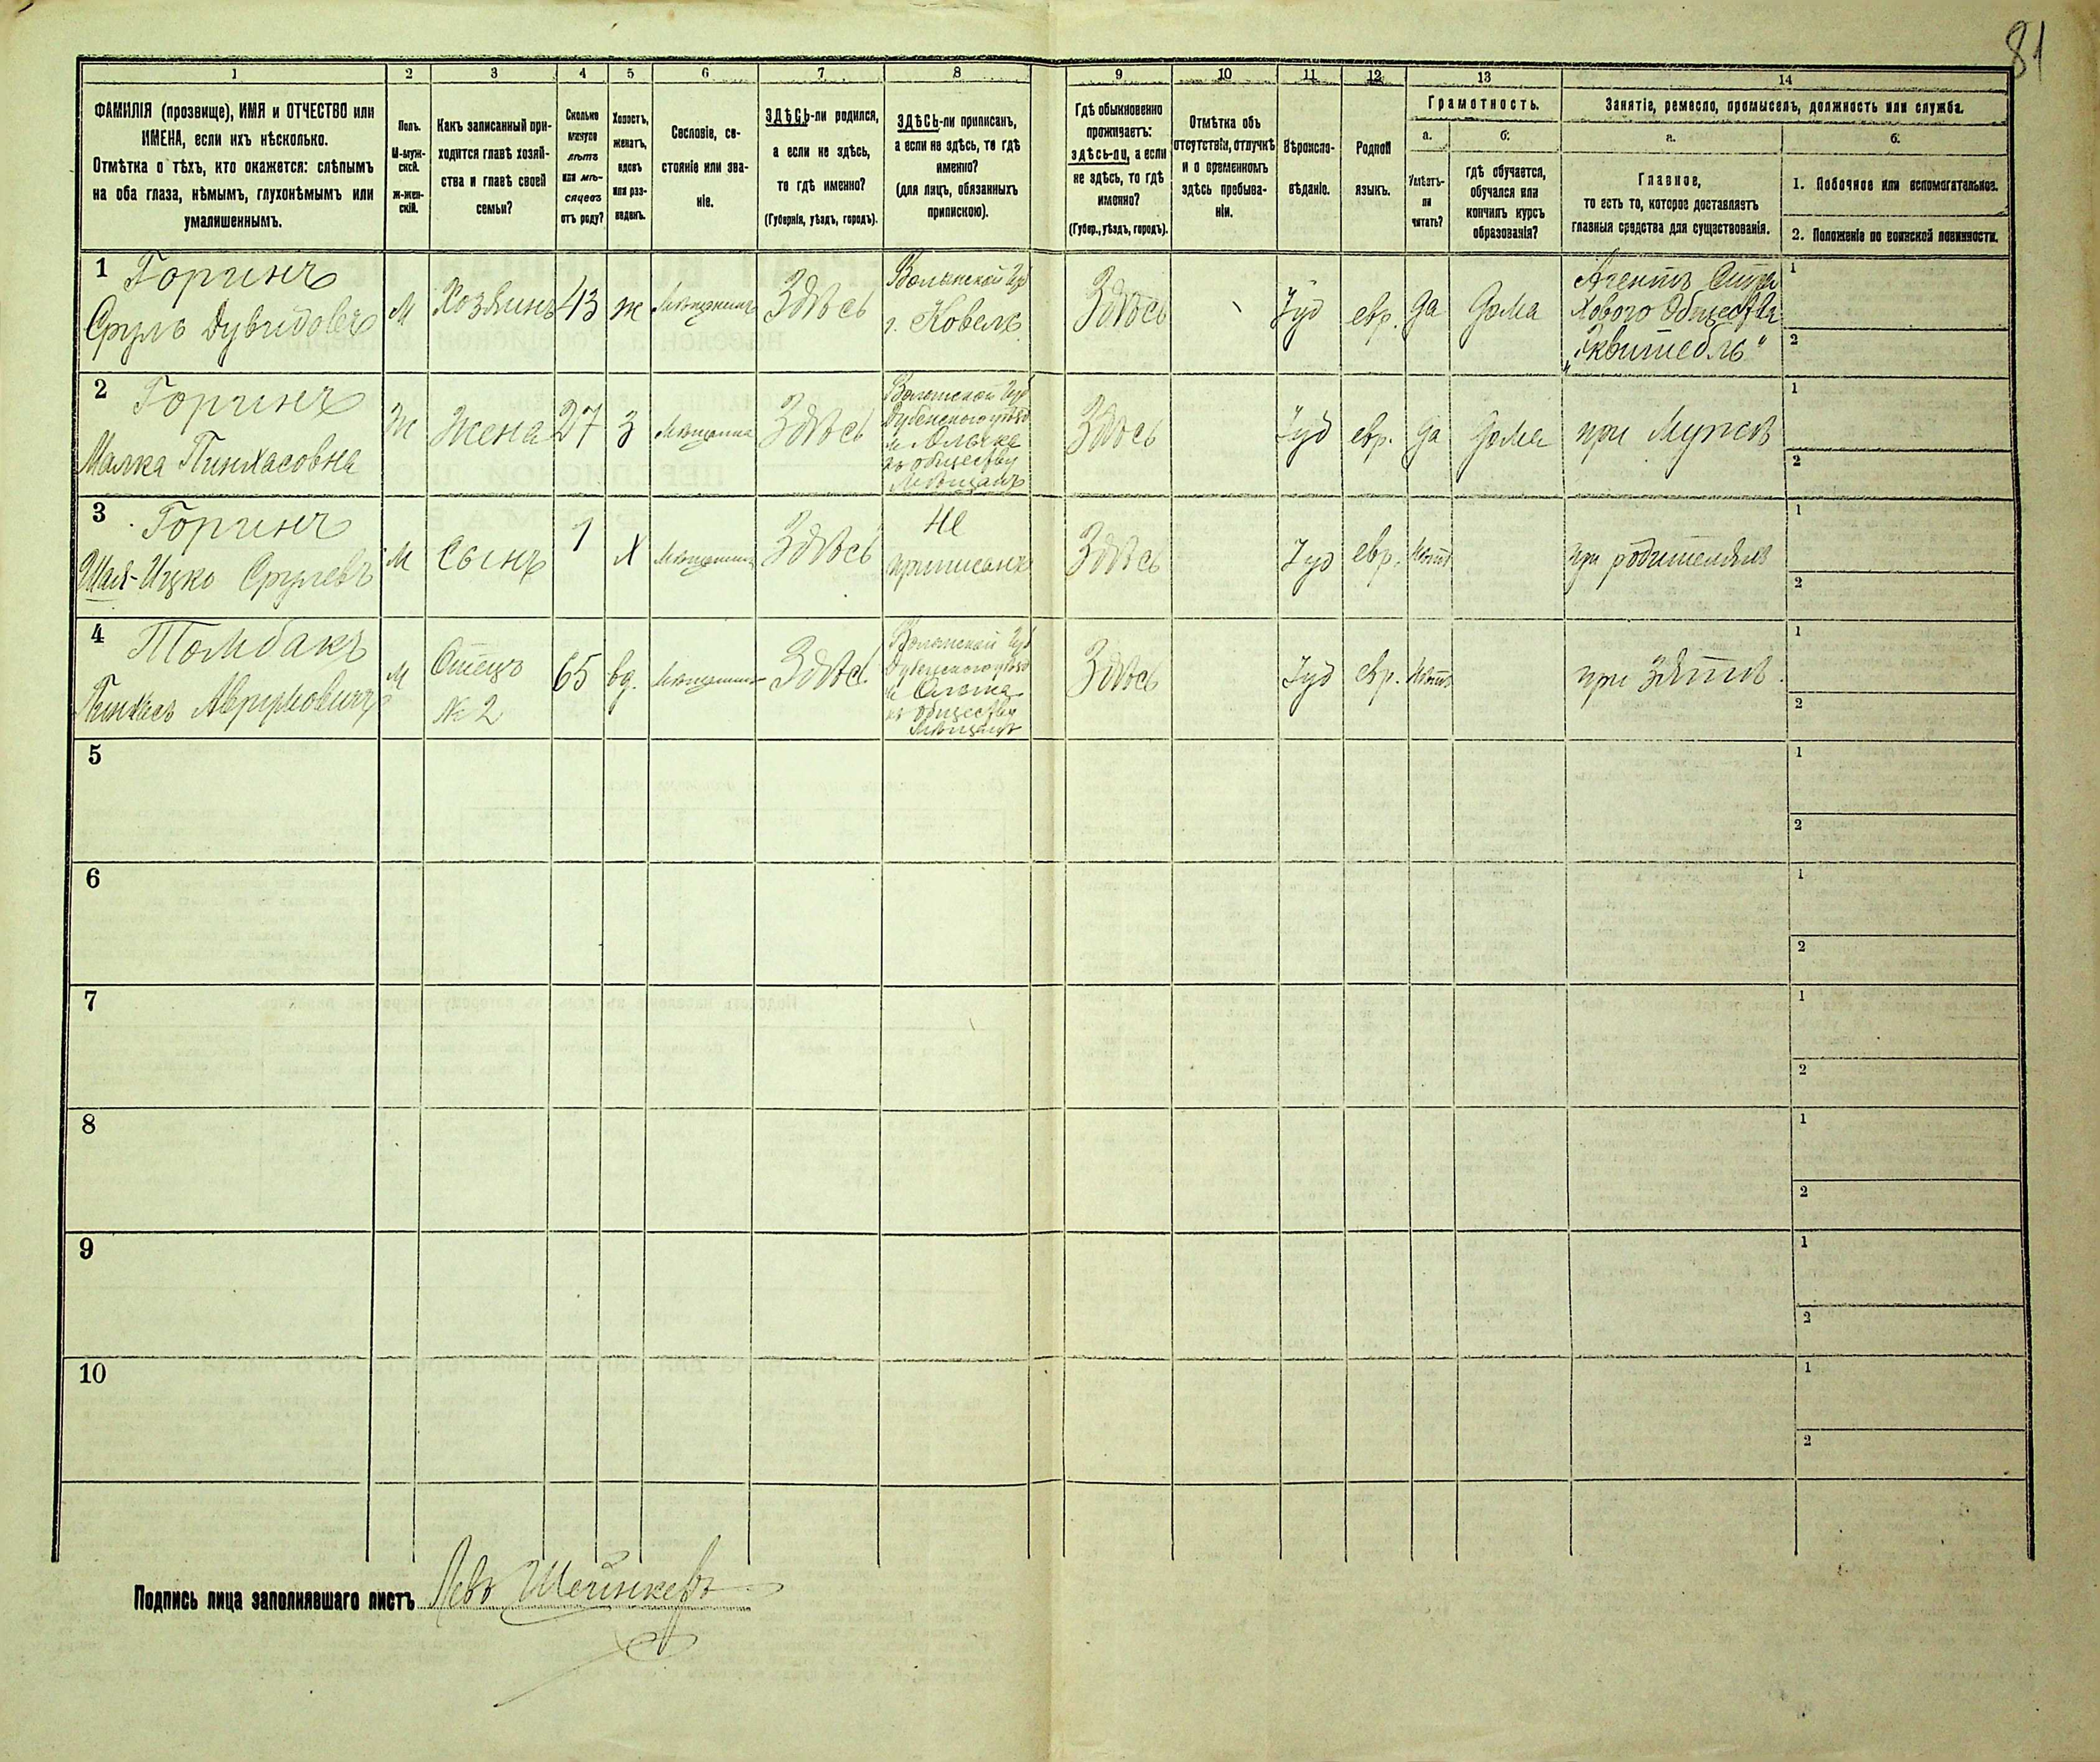 81
1 2 3 4 5 6 7 8 9 10 11 12 13 14
ФАМИЛІЯ (прозвище), ИМЯ и ОТЧЕСТВО или
ИМЕНА, если ихъ нѣсколько.
Отмѣтка о тѣхъ, кто окажется: слѣпымъ
на оба глаза, нѣмымъ, глухонѣмымъ или
умалишеннымъ.
Полъ.
М-муж-
ской.
Ж-жен-
скій.
Какъ записанный при-
ходится главѣ хозяй-
ства и главѣ своей
семьи?
Сколько
минуло
лѣтъ
или мѣ-
сяцевъ
отъ роду?
Холостъ,
женатъ,
вдовъ
или раз-
веденъ.
Сословіе, со-
стояніе или зва-
ніе.
ЗДѢСЬ-ли родился,
а если не здѣсь,
то гдѣ именно?
(Губернія, уѣздъ, городъ).
ЗДѢСЬ-ли приписанъ,
а если не здѣсь, то гдѣ
именно?
(для лицъ, обязанныхъ
припискою).
Гдѣ обыкновенно
проживаетъ:
здѣсь-ли, а если
не здѣсь, то гдѣ
именно?
(Губер., уѣздъ, городъ).
Отмѣтка объ
отсутствіи, отлучкѣ
и о временномъ
здѣсь пребыва-
ніи.
Вѣроиспо-
вѣданіе.
Родной
языкъ.
Грамотность.
а.
Умѣетъ-
ли
читать?
б.
гдѣ обучается,
обучался или
кончилъ курсъ
образованія?
Занятіе, ремесло, промыселъ, должность или служба.
а.
Главное,
то есть то, которое доставляетъ
главныя средства для существованія.
б.
1. Побочное или вспомогательное.
2. Положеніе по воинской повинности.
1 Горинъ
Сруль Дувидовъ
М
Хозяинъ
43
ж
Мѣщанинъ
Здѣсь
Волынской Губ
г. Ковель
Здѣсь
Іуд
евр.
да
дома
Агентъ Стра
хового Общества
„Эквитебль"
1
2
2 Горинъ
Малка Пинхасовна
Ж
Жена
27
З
Мѣщанка
Здѣсь
Волынской Губ
Дубенского уѣзд
м Олыка
къ обществу
Мѣщанъ
Здѣсь
Іуд
евр.
да
дома
при Мужѣ
1
2
3 Горинъ
Шая-Ицко Срулевъ
М
Сынъ
1
Х
Мѣщанинъ
Здѣсь
не
приписанъ
Здѣсь
Іуд
евр.
Нѣтъ
при родителяхъ
1
2
4 Томбакъ
Пинхасъ Аврумовичъ
М
Отецъ
№ 2
65
вд.
Мѣщанинъ
Здѣсь
Волынской Губ
Дубенского уѣзд
м Олыка
къ обществу
Мѣщанъ
Здѣсь
Іуд
евр.
Нѣтъ
при зятѣ.
1
2
5
1
2
6
1
2
7
1
2
8
1
2
9
1
2
10
1
2
Подпись лица заполнявшаго листъ Левъ